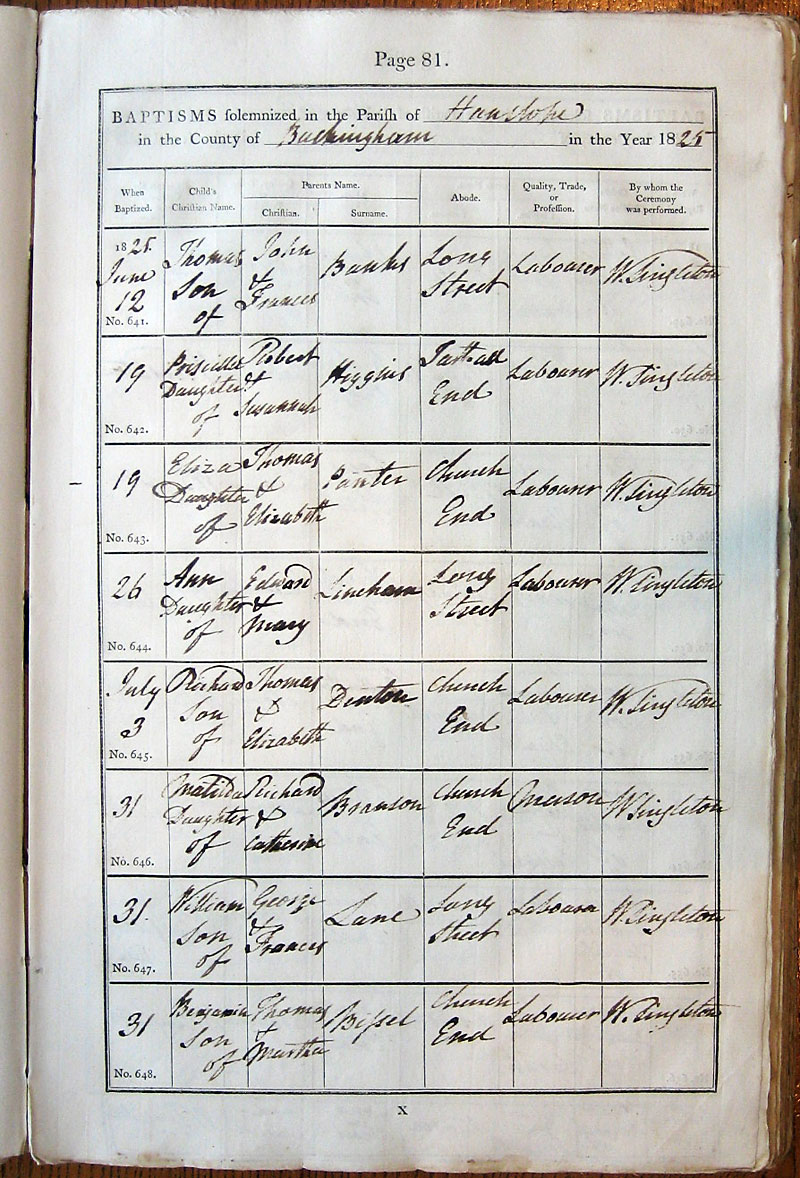 Page 81.
BAPTISMS solemnized in the Parish of Hanslope
in the County of Buckingham in the Year 1825
When Baptized.
Child's Christian Name.
Parents Name.
Christian.
Surname.
Abode.
Quality, Trade, or Profession.
By whom the Ceremony was performed.
1825.
June
12
No. 641.
Thomas
Son
of
John
&
Frances
Banks
Long
Street
Labourer
W. Singleton
19
No. 642.
Priscilla
Daughter
of
Robert
&
Susannah
Higgins
End
Labourer
W. Singleton
19
No. 643.
Eliza
Daughter
of
Thomas
&
Elizabeth
Panter
Church
End
Labourer
W. Singleton
26
No. 644.
Ann
Daughter
of
Edward
&
Mary
Lineham
Long
Street
Labourer
W. Singleton
July
3
No. 645.
Richard
Son
of
Thomas
&
Elizabeth
Denton
Church
End
Labourer
W. Singleton
31
No. 646.
Matilda
Daughter
of
Richard
&
Catherine
Branson
Church
End
Mason
W. Singleton
31.
No. 647.
William
Son
of
George
&
Frances
Lane
Long
Street
Labourer
W. Singleton
31
No. 648.
Benjamin
Son
of
Thomas
&
Martha
Bissel
Church
End
Labourer
W. Singleton
X